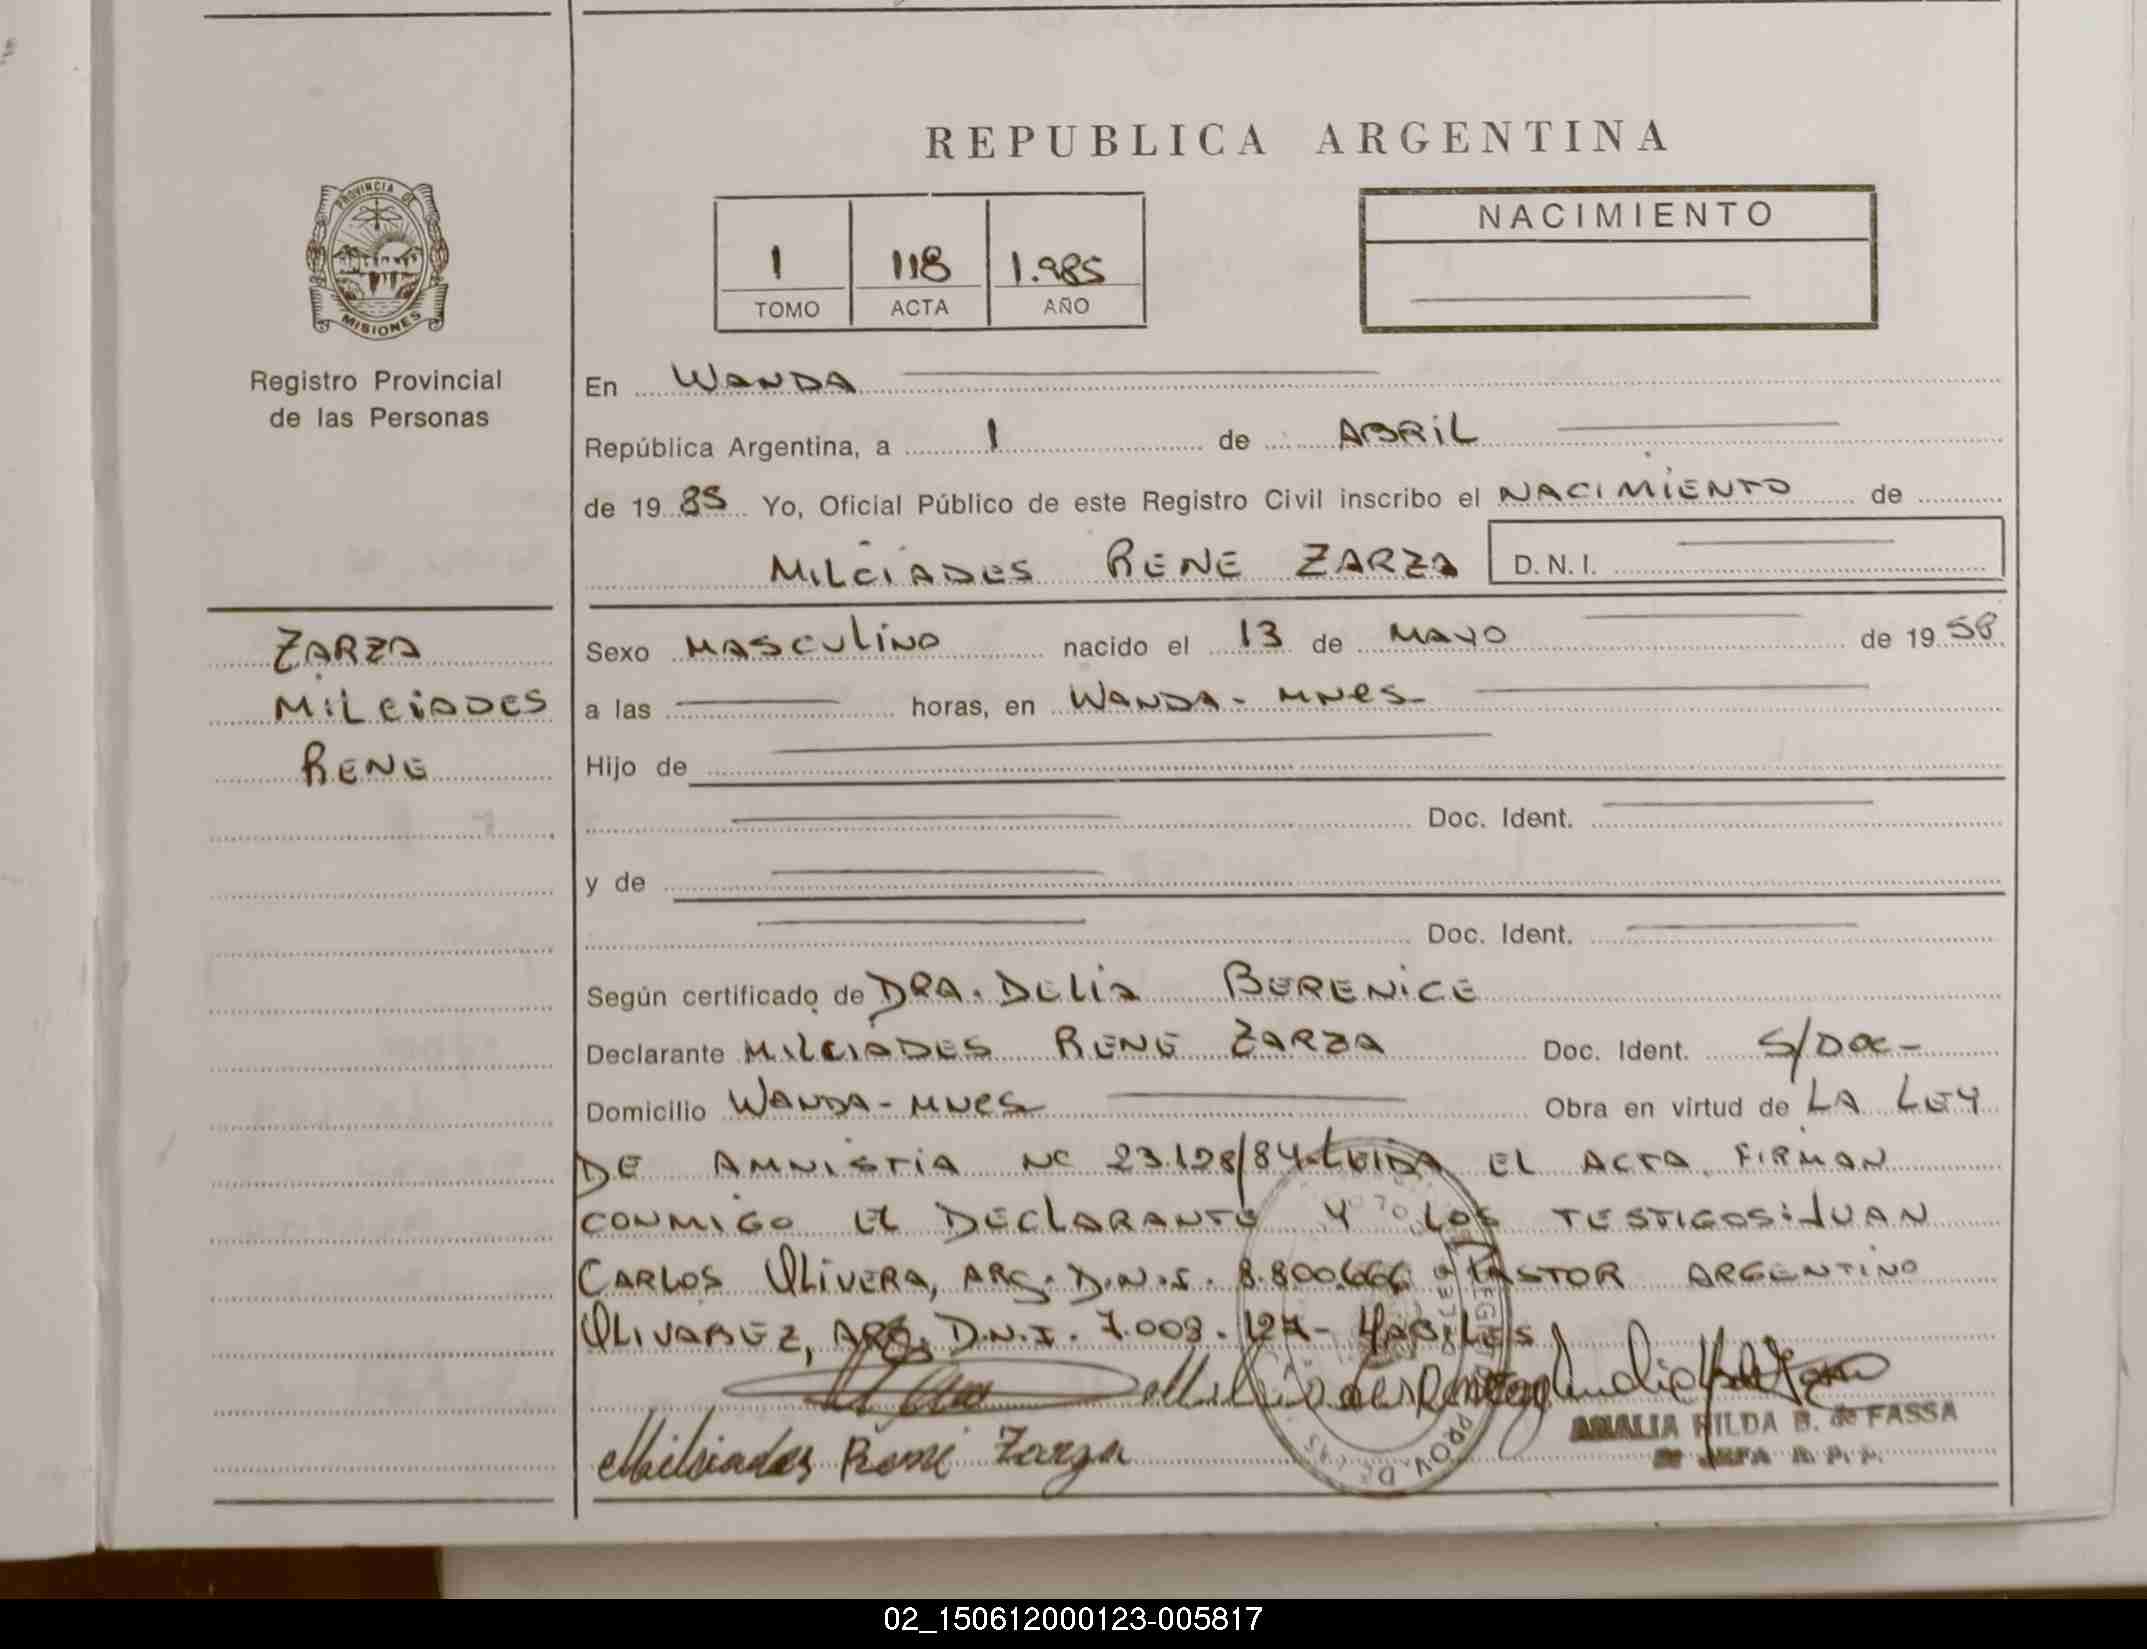 REPUBLICA ARGENTINA
PROVINCIA DE
MISIONES
Registro Provincial
de las Personas
1 118 1.985
TOMO ACTA AÑO
NACIMIENTO
En WANDA
República Argentina, a 1 de ABRIL
de 19 85 Yo, Oficial Público de este Registro Civil inscribo el NACIMIENTO de
MILCIADES RENE ZARZA D.N.I.
ZARZA
MILCIADES
RENE
Sexo MASCULINO nacido el 13 de MAYO de 19 58
a las horas, en WANDA - MNES
Hijo de
Doc. Ident.
y de
Doc. Ident.
Según certificado de DRA. DELIA BERENICE
Declarante MILCIADES RENE ZARZA Doc. Ident. S/DOC-
Domicilio WANDA - MNES Obra en virtud de LA LEY
DE AMNISTIA Nº 23.128/84-LEIDA EL ACTA FIRMAN
CONMIGO EL DECLARANTE Y LOS TESTIGOS: JUAN
CARLOS OLIVERA, ARG. D.N.I. 8.800.666 PASTOR ARGENTINO
OLIVAREZ, ARG. D.N.I. 7.009.127 - HABILES
Milciades René Zarza
AMALIA HILDA B. de FASSA
PROV. DE
02_150612000123-005817